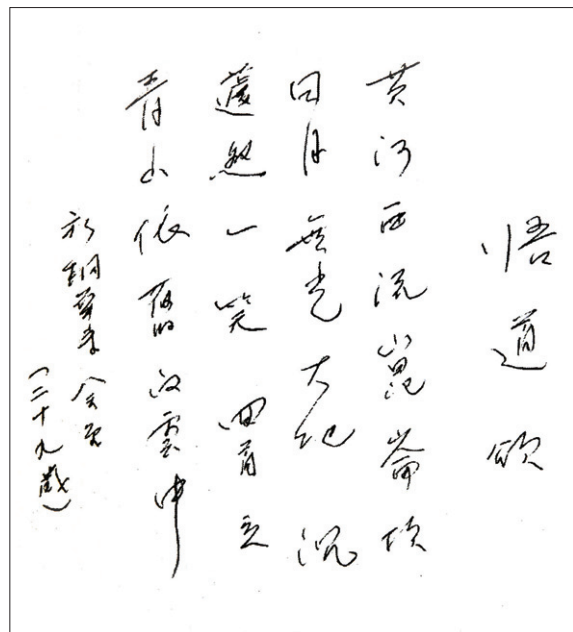 悟道頌
黃河西流崑崙頂
日月無光大地沉
遽然一笑回首立
青山依舊白雲中
於桐華寺 金堂
(二十九歲)